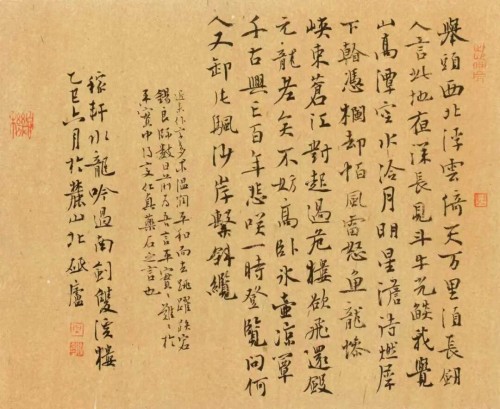 舉頭西北浮雲倚天万里須長劍
人言此地夜深長見斗牛光燄我覺
山高潭空水冷月明星澹待燃犀
下看憑欄却怕風雷怒魚龍慘
峽束蒼江對起過危樓欲飛還斂
元龍老矣不妨高卧冰壺涼簟
千古興亡百年悲咲一時登覽問何
人又卸片颿沙岸繫斜纜
近來作字多求温潤平和而去跳躍跌宕
錫良師數日前吾言平實難於
平實中真藥石之言也
稼軒水龍吟過南劍雙溪樓
乙巳六月於麓山北廬